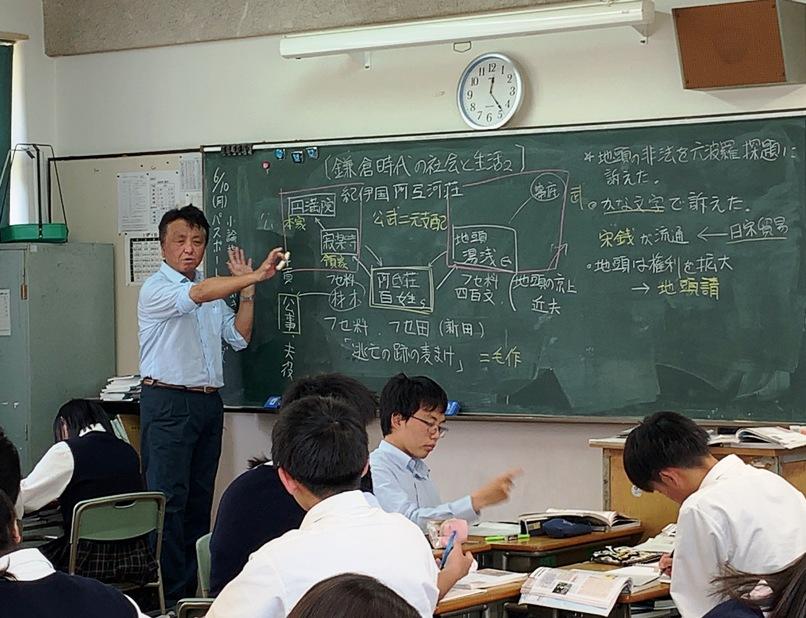 〔鎌倉時代の社会と生活2〕
6/10(月)パスポー
小論
紀伊国阿氐河荘
円満院
本家
公武二元支配
寂楽寺
領家
幕府
武
地頭
湯浅氏
阿氐荘
百姓s
フセ料
材木
フセ料
四百文
地頭の京上
近夫
年貢
公事
夫役
フセ料、フセ田(新田)
「逃亡の跡の麦まけ」 =二毛作
*地頭の非法を六波羅探題に
訴えた。
。かな文字で訴えた。
宋銭が流通 ← 日宋貿易
・地頭は権利を拡大
→ 地頭請